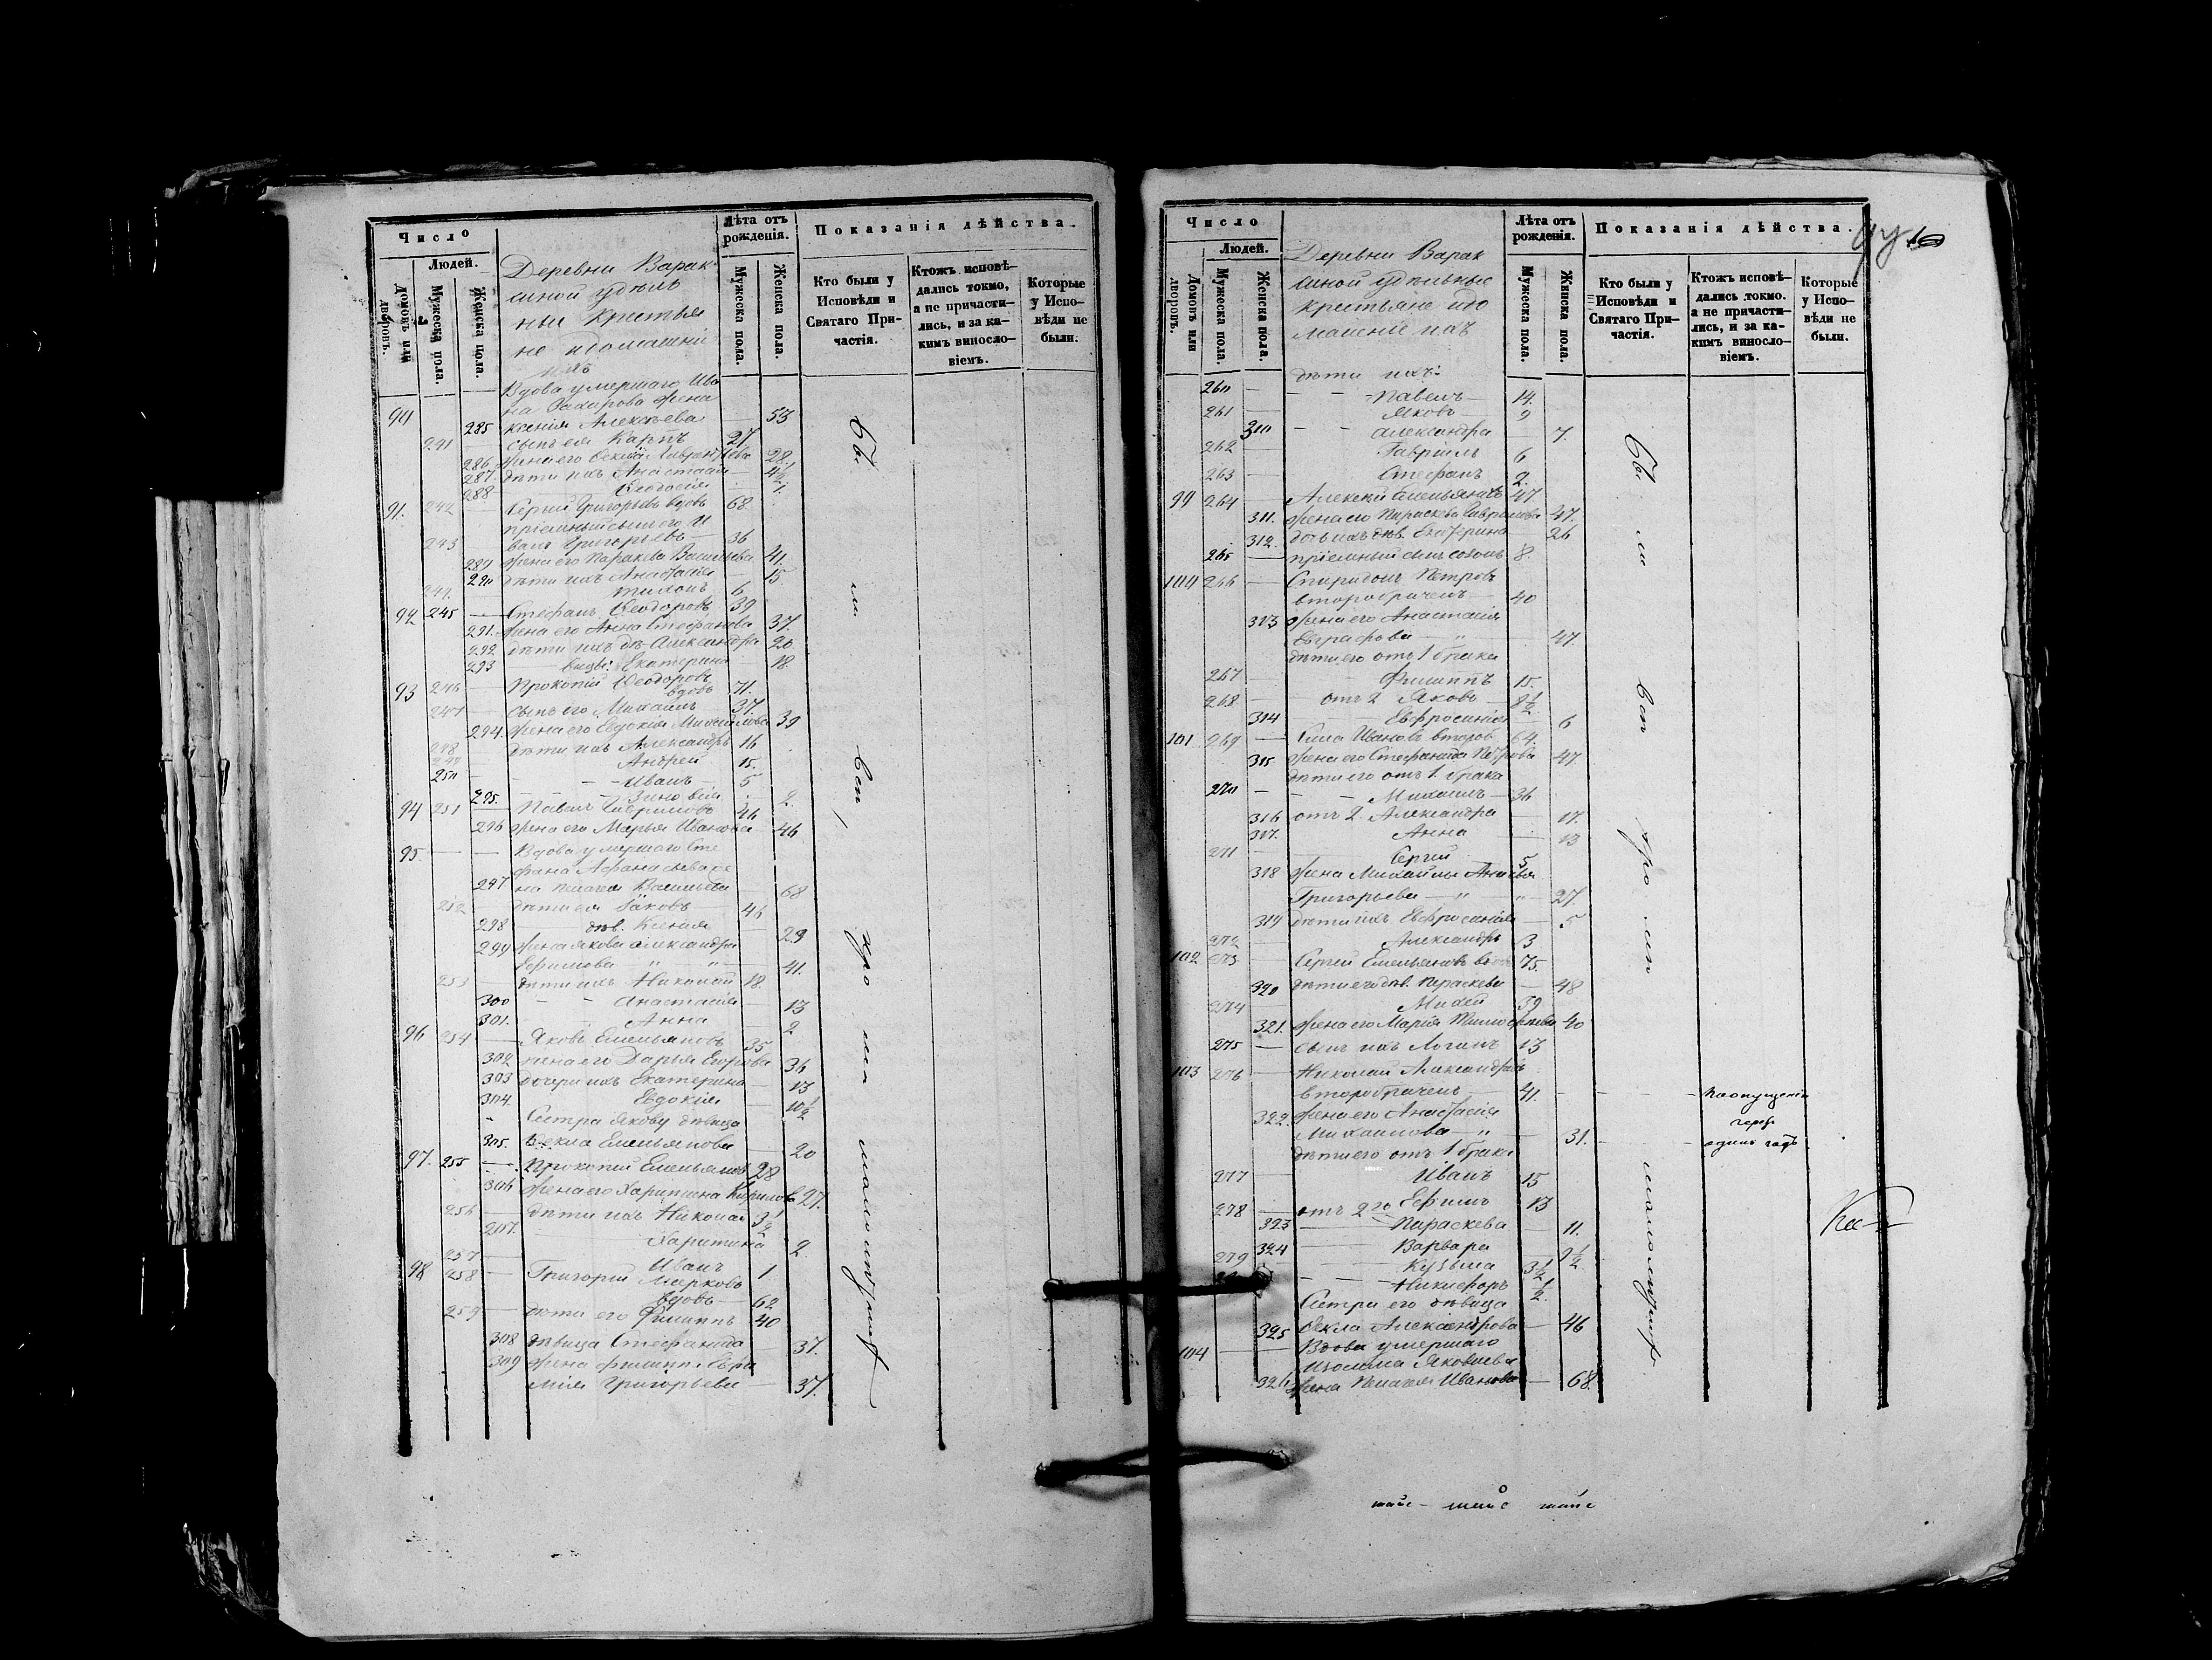 Число
Людей.
Домовъ или дворовъ.
Мужеска пола.
Женска пола.
ДеревниВарак
синой удѣль
ные крестья
не и домашніе
ихъ
Лѣта отъ рожденія.
Мужеска пола.
Женска пола.
Показанія дѣйства.
Кто были у Исповѣди и Святаго Причастія.
Ктожъ исповѣдались токмо, а не причастились, и за какимъ винословіемъ.
Которые у Исповѣди не были.
Вдова умершаго Ива
на Захарова жена
90 285 Ксенія Алексѣева 53
241 сынъ ея Карпъ 27.
286 жена его Ѳекла Лаврентьева 28.
287. дѣти ихъ Анастасія 4½
288 Ѳеодосія 1.
91. 242 Сергій Григорьевъ вдовъ 68
пріемный сынъ его И
243 ванъ Григорьевъ 36
289 жена его Параскева Васильева 41.
290 дѣти ихъ Анастасія 15
244. Тихонъ 6
92 245 Стефанъ Ѳеодоровъ 39
291. жена его Анна Стефанова 37.
292 дѣти ихъ дѣ. Александра 20
293 Екатерина 18.
93 246 Прокопій Ѳеодоровъ
вдовъ 71.
247 сынъ его Михаилъ 37.
294. жена его Евдокія Михайлова 39
248 дѣти ихъ Александръ 16
249 Андрей 15.
250 Иванъ 5
295. Зиновія 2.
94 251 Павелъ Гавриловъ 46
296 жена его Марья Иванова 46
95. Вдова умершаго Сте
фана Афанасьева же
297 на Пелагея Васильева 68
252 дѣти ея Іаковъ 46
298 дѣв. Ксенія 29
299 жена Якова Александра
Ефимова " " 41.
253 дѣти ихъ Николай 18.
300 Анастасія 13
301. Анна 2
96 254 Яковъ Емельяновъ 35
302 жена его Дарья Егорова 36
303 дочери ихъ Екатерина 13
304. Евдокія 10½
Сестра Якову дѣвица
305. Ѳекла Емельянова 20
97. 255 Прокопій Емельяновъ 28
306 жена его Харитина Кирилова 27.
256 дѣти ихъ Николай 3½
307. Харитина 2
257 Иванъ 1
98 258 Григорій Марковъ
вдовъ 62
259 дѣти его Филиппъ 40
308 дѣвица Стефанида 37.
309 жена Филиппа Евфи
мія Григорьева 37.
бы ли всѣ, кро мѣ малолѣтныхъ
Число
Людей.
Домовъ или дворовъ.
Мужеска пола.
Женска пола.
Деревни Варак
синой удѣльные
крестьяне и до
машніе ихъ
Лѣта отъ рожденія.
Мужеска пола.
Женска пола.
Показанія дѣйства.
Кто были у Исповѣди и Святаго Причастія.
Ктожъ исповѣдались токмо. а не причастились, и за какимъ винословіемъ.
Которые у Исповѣди не были.
дѣти ихъ:
260 Павелъ 14.
261 Яковъ 9
310 Александра 7.
262 Гавріилъ 6
263 Стефанъ 2.
99 264 Алексѣй Емельяновъ 47
311. жена его Параскева Гаврилова 47.
312. дочь ихъ дѣв. Екатерина 26
265 пріемный сынъ Созонъ 8.
100 266 Спиридонъ Петровъ
второбраченъ 40
313 жена его Анастасія
Евграфова " 47.
дѣти его отъ 1 брака
267 Филиппъ 15.
268 отъ 2 Яковъ 8½
314 Евфросинія 6
101 269 Сила Ивановъ второб 64.
315 жена его Стефанида Петрова 47.
дѣти его отъ 1. брака
270 Михаилъ 36
316 отъ 2. Александра 17.
317. Анна 13
271 Сергій 5
318 жена Михаилы Анисья
Григорьева " " 27.
319 дѣти ихъ Евфросинія 5
272 Александръ 3
102 273 Сергій Емельяновъ вдовъ 75.
320 дѣти его дѣв. Параскева 48
274 Михей 39
321. жена его Марія Тимофеева 40
275 сынъ ихъ Логинъ 13
103 276 Николай Александровъ
второбраченъ 41.
322 жена его Анастасія
Михаилова " 31.
По опущенію
чрезъ
одинъ годъ
дѣти его отъ 1 брака
277 Иванъ 15
278 отъ 2го Ефимъ 13
323 Параскева 11.
324 Варвара 9½
279 Кузьма 3½
Никифоръ ½.
Сестра его дѣвица
325 Ѳекла Александрова 46
104 Вдова умершаго
Яковлева
326 жена Пелагея Иванова 68.
бы ли всѣ кро мѣ малолѣтныхъ